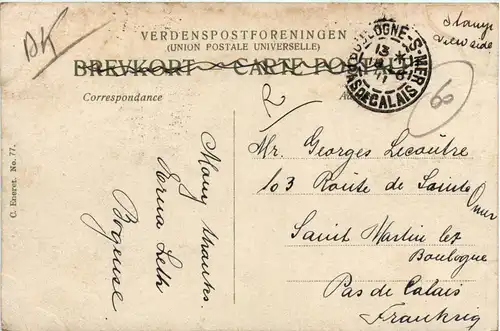 DK
VERDENSPOSTFORENINGEN
(UNION POSTALE UNIVERSELLE)
BREVKORT CARTE POSTALE
Correspondance
C. Eneret. No. 77.
BOULOGNE-S-MER
13
PAS DE CALAIS
Stamp
view side
60
Many thanks.
Erna Leth
Bogense
Mr. Georges Lecoutre
103 Route de Sainte
Omer
Saint Martin lez
Boulogne
Pas de Calais
Frankrig